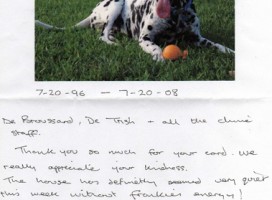 7-20-96 — 7-20-08
De Broussard, De Trish + all the clinic
staff.
Thank you so much for your card. We
really appreciate your kindness.
The house has definitely seemed very quiet
this week without Frankie's energy!